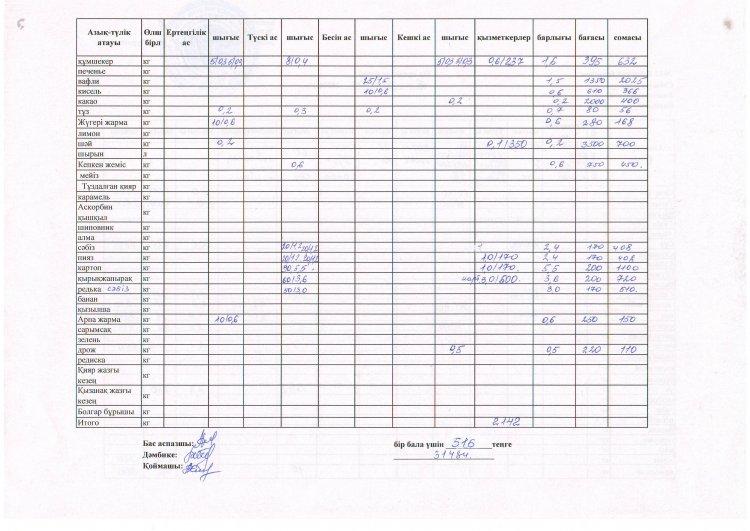 Азық-түлік атауы Өлш бірл Ертеңгілік ас шығыс Түскі ас шығыс Бесін ас шығыс Кешкі ас шығыс қызметкерлер барлығы бағасы сомасы
құмшекер кг 5/03 5/03 8/0,4 5/03 5/03 0,6/237 1,6 395 632
печенье кг
вафли кг 25/1,5 1,5 1350 2025
кисель кг 10/0,6 0,6 610 366
какао кг 0,2 0,2 2000 400
тұз кг 0,2 0,3 0,2 0,7 80 56
Жүгері жарма кг 10/0,6 0,6 280 168
лимон кг
шәй кг 0,2 0,1/350 0,2 3500 700
шырын л
Кепкен жеміс кг 0,6 0,6 750 450.
мейіз кг
Тұздалған қияр кг
карамель кг
Аскорбин қышқыл кг
шиповник кг
алма кг
сәбіз кг 20/1,2 20/1,2 2,4 170 408
пияз кг 20/1,2 20/1,2 10/170 2,4 170 408
картоп кг 90 5,5 10/170. 5,5 200 1100
қырыққанырақ кг 60/3,6 3,0/600. 3,6 200 720
редька сәбіз кг 50/3,0 3,0 170 510.
банан кг
қызылша кг
Арпа жарма кг 10/0,6 0,6 250 150
сарымсақ кг
зелень кг
дрож кг 0,5 0,5 220 110
редиска кг
Қияр жазғы кезең кг
Қызанақ жазғы кезең кг
Болгар бұрышы кг
Итого кг 2142
Бас аспазшы: бір бала үшін 516 теңге
Дәмбике: 31484.
Қоймашы: